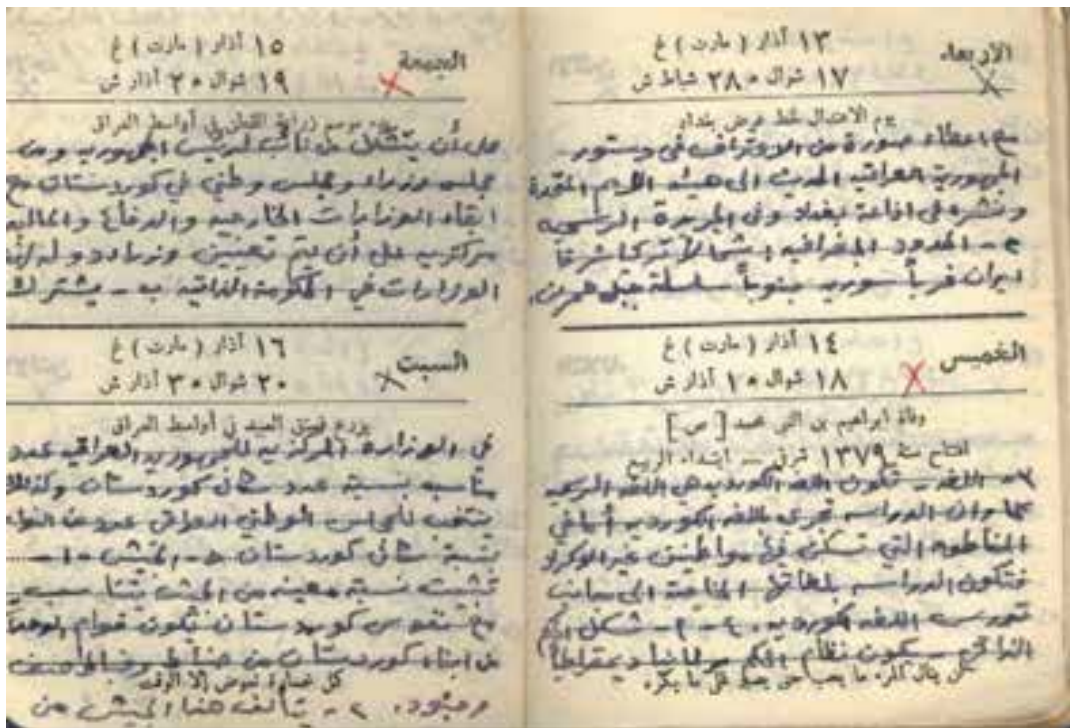 الأربعاء
١٣ آذار ( مارت ) غ
١٧ شوال ٢٨٥ شباط ش
يوم الاعتدال لخط عرض بغداد
مع اعطاء صورة من الاعتراف في دستور
الجمهورية العراقية الحديث الى هيئة الامم المتحدة
ونشره في اذاعة بغداد وفي الجريدة الرسمية
الحدود الجغرافية شمالاً تركيا شرقاً
ايران غرباً سوريه جنوباً سلسلة جبل حمرين
الخميس
١٤ آذار ( مارت ) غ
١٨ شوال ١٥ آذار ش
وفاة ابراهيم بن النبي محمد [ ص ]
افتتاح سنة ١٣٧٩ شرقي — ابتداء الربيع
اللغة - تكون اللغة الكورديه هي اللغة الرسميه
كما وان الدراسه تجري باللغة الكورديه أما في
المناطق التي تسكن فيها مواطنين غير الاكراد
فتكون الدراسه بلغاتهم الخاصة الى جانب
تدريس اللغة الكورديه. ٤ - شكل الحكم
الذاتي سيكون نظام الحكم برلمانيا ديمقراطيا
الجمعة
١٥ آذار ( مارت ) غ
١٩ شوال ٢٥ آذار ش
موسم زراعة القطن في أواسط العراق
على أن يتشكل من نائب لرئيس الجمهوريه ومن
مجلس وزراء ومجلس وطني في كوردستان مع
ابقاء الوزارات الخارجيه والدفاع والماليه
مركزيه على أن يتم تعيين وزراء
الوزارات في الحكومة الذاتيه ب - يشترك
السبت
١٦ آذار ( مارت ) غ
٢٠ شوال ٣٥ آذار ش
يزرع في أواسط العراق
في الوزارة المركزيه للجمهوريه العراقيه عدد
يتناسب بنسبة عدد سكان كوردستان وكذلك
ينتخب للمجلس الوطني العراقي عدد من النواب
بنسبة سكان كوردستان ٥ - الجيش - ١ -
تثبت نسبة معينه من الجيش تتناسب
مع نفوس كوردستان تكون قوام الوحدات
من ابناء كوردستان من ضباط وضباط صف
وجنود. ٢ - تتألف هذا الجيش من